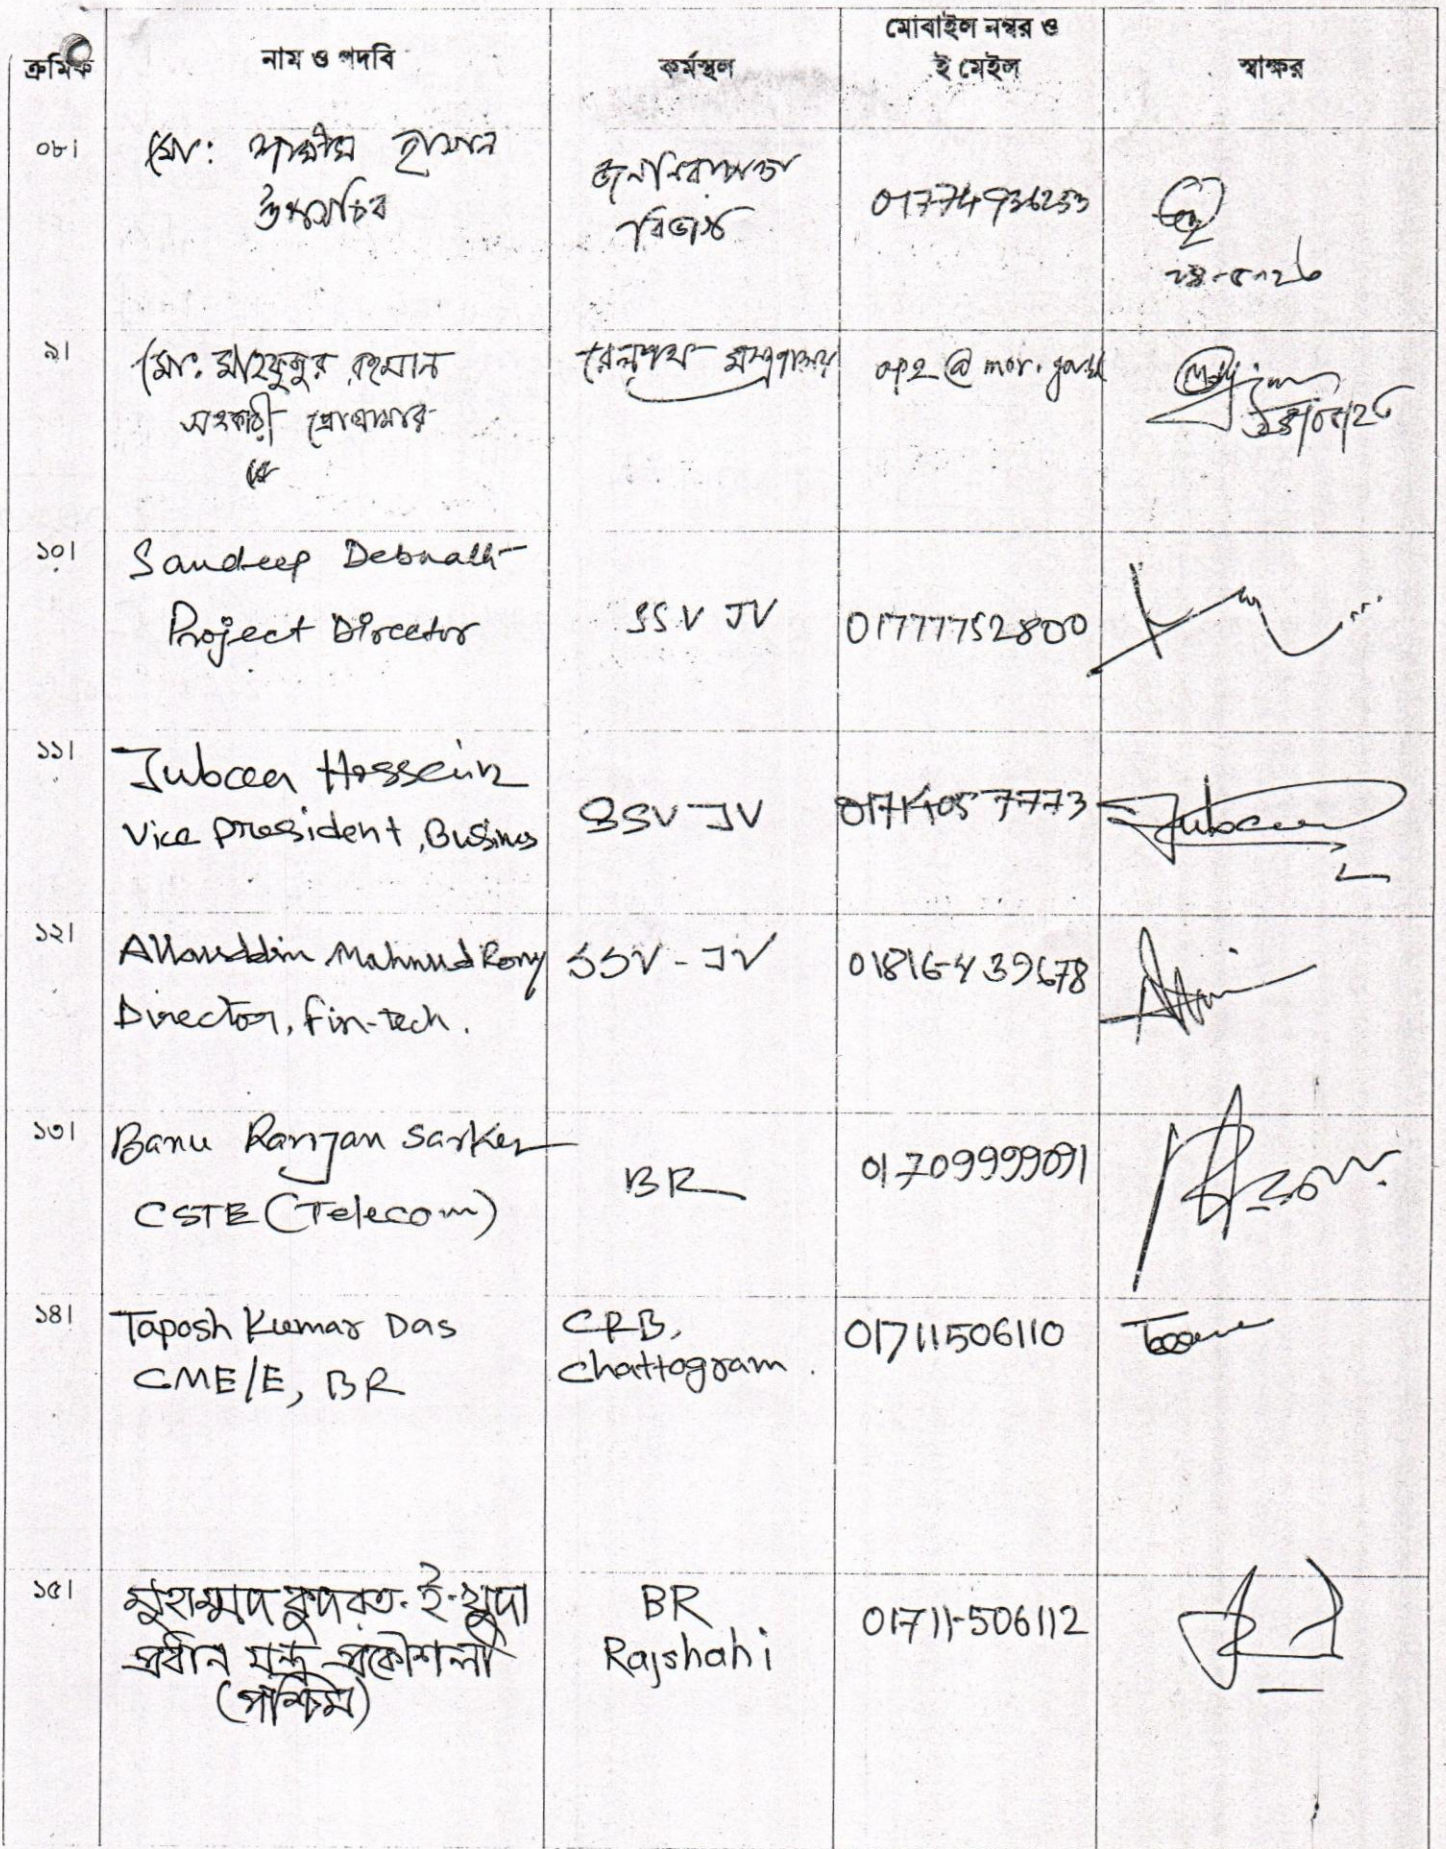 ক্রমিক
নাম ও পদবি
কর্মস্থল
মোবাইল নম্বর ও
ই মেইল
স্বাক্ষর
০৮।
মো: শামীম হাসান
উপসচিব
জননিরাপত্তা
বিভাগ
৯।
মো: মাহফুজুর রহমান
সহকারী প্রোগ্রামার
রেলপথ মন্ত্রণালয়
১০।
Sandeep Debnath
Project Director
SSV JV
01777752800
১১।
Jubaer Hossein
Vice president, Business
SSV JV
01714057773
Jubaer
১২।
Allauddin Mahmud Rony
Director, fin-tech.
SSV-JV
01816-439678
১৩।
Banu Ranjan Sarker
CSTE (Telecom)
BR
01709999091
১৪।
Taposh Kumar Das
CME/E, BR
CRB,
Chattogram.
01711506110
১৫।
মুহাম্মদ কুদরত-ই-খুদা
প্রধান যন্ত্র প্রকৌশলী
(পশ্চিম)
BR
Rajshahi
01711-506112